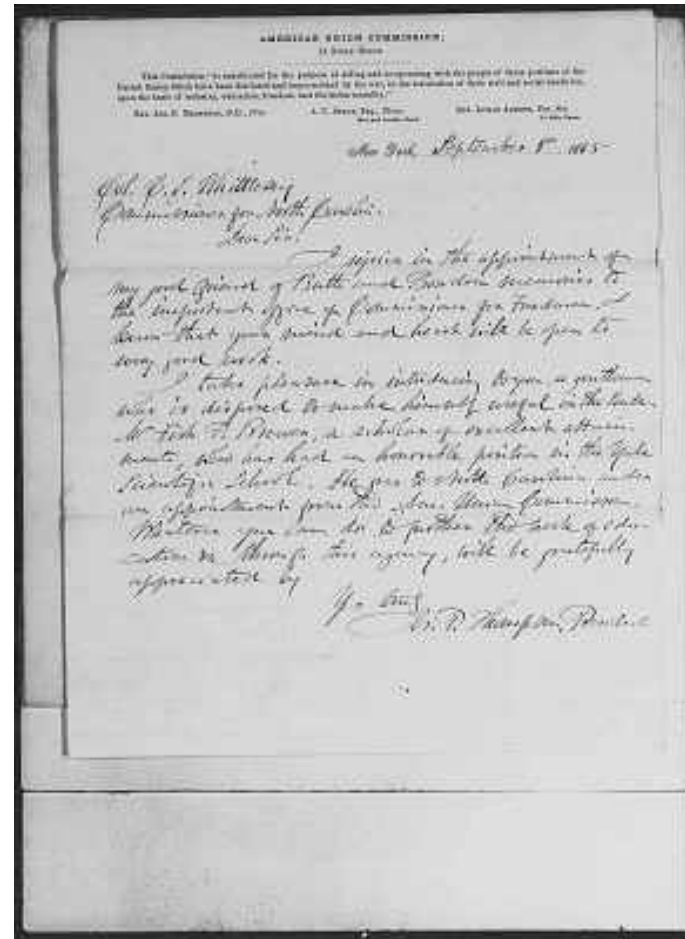 AMERICAN UNION COMMISSION,
This Commission "is constituted for the purpose of aiding and co-operating with the people of those portions of the
United States which have been desolated and impoverished by the war, in the restoration of their civil and social condition,
upon the basis of industry, education, freedom, and Christian morality."
Rev. Jos. P. Thompson, D.D., Pres. Rev. Lyman Abbott,
New York September 8th 1865
Col. E. Whittlesey
Commissioner for North Carolina.
Dear Sir.
I rejoice in the appointment of
my good friend of and Bowdoin memories to
the important office of Commissioner for Freedmen. I
know that your mind and heart will be open to
every good work.
I take pleasure in introducing to you a gentleman
who is disposed to make himself useful in the
Mr Fisk P. Brewer, a scholar of excellent attain-
ments, who has had an honorable position in the Yale
Scientific School. He goes to North Carolina under
an appointment from the Am. Union Commission.
Whatever you can do to further the work of edu-
cation through this agency, will be gratefully
appreciated by
Yrs truly
Jos. P. Thompson, President